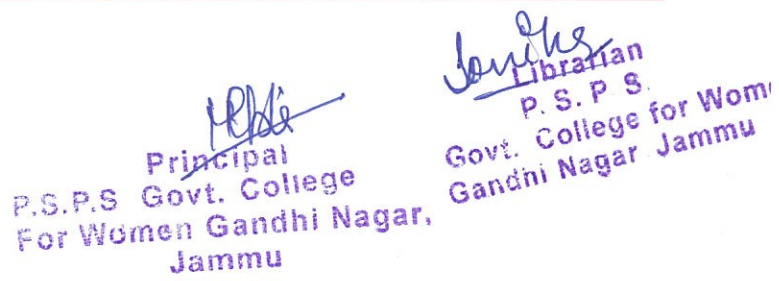 Principal
P.S.P.S Govt. College
For Women Gandhi Nagar,
Jammu
Librarian
P. S. P S.
Govt. College for Wome
Gandhi Nagar Jammu